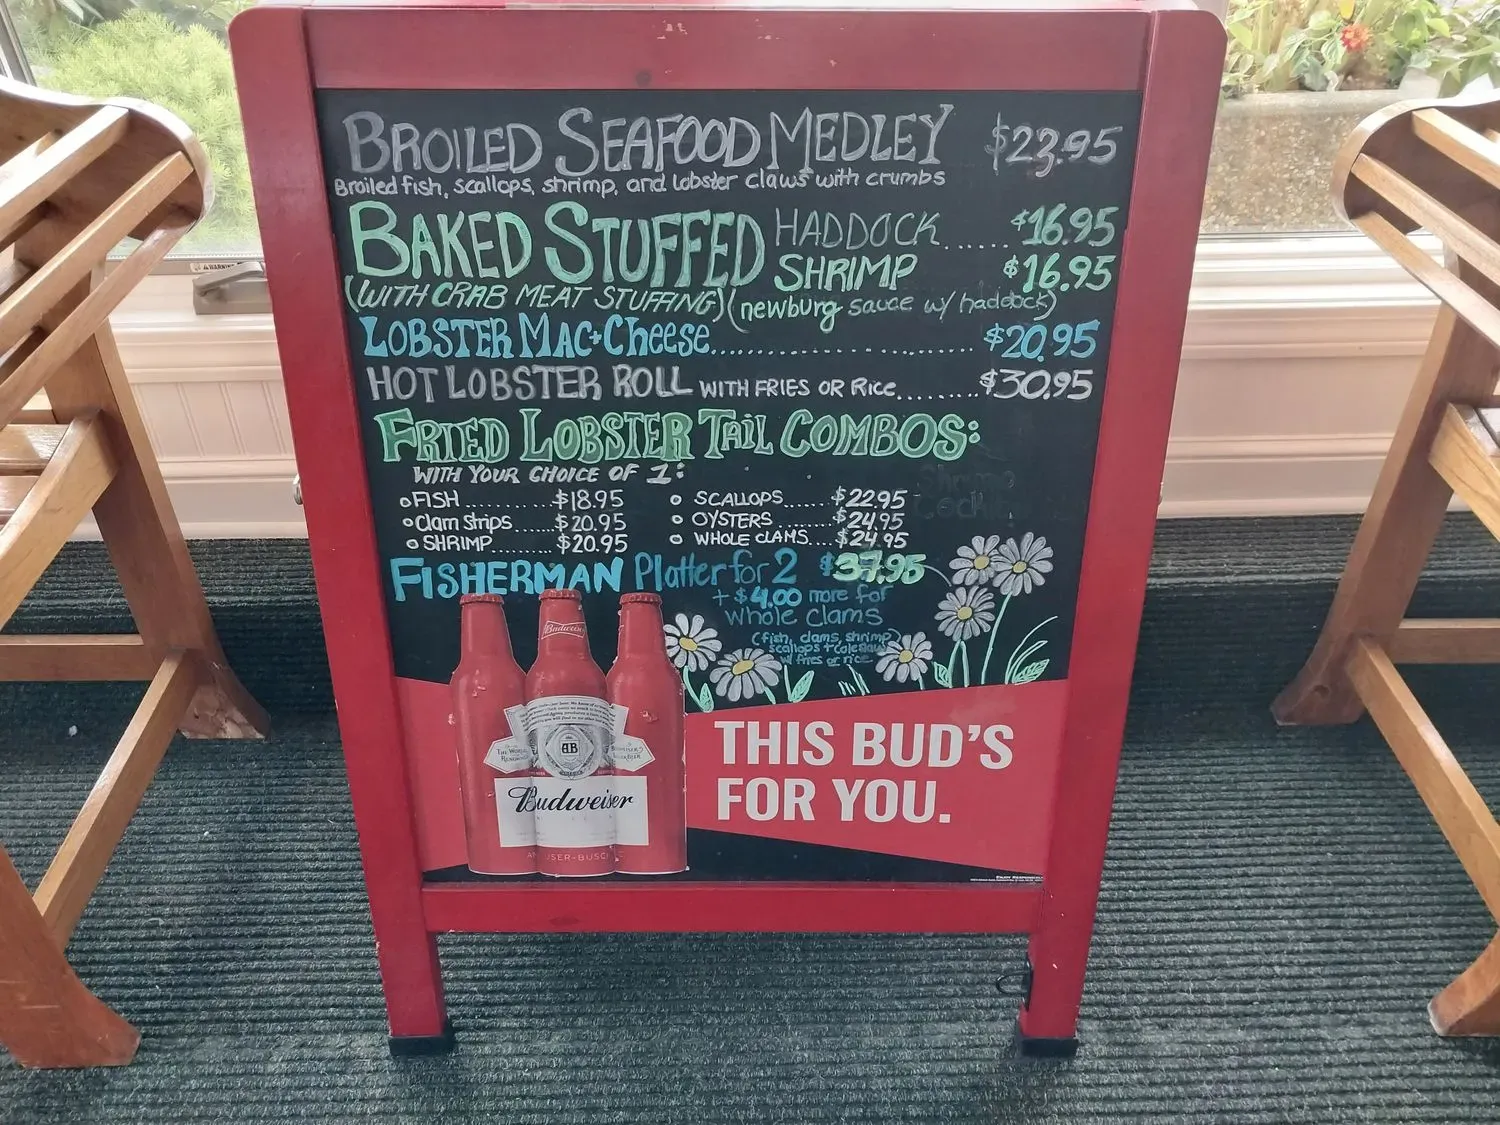 BROILED SEAFOOD MEDLEY $23.95
Broiled fish, scallops, shrimp, and lobster claws with crumbs
BAKED STUFFED HADDOCK......$16.95
SHRIMP $16.95
(WITH CRAB MEAT STUFFING) (newburg sauce w/ haddock)
LOBSTER MAC+Cheese........................ $20.95
HOT LOBSTER ROLL WITH FRIES OR Rice.........$30.95
FRIED LOBSTER TAIL COMBOS:
WITH YOUR CHOICE OF 1:
Shrimp
FISH..........$18.95
SCALLOPS......$22.95
Clam Strips.....$20.95
OYSTERS.......$24.95
SHRIMP.........$20.95
WHOLE CLAMS....$24.95
FISHERMAN Platter for 2 $37.95
+ $4.00 more for
Whole Clams
(fish, clams, shrimp
scallops + coleslaw
w/ fries or rice
Budweiser
THE WORLD
RENOWNED
AB
BUDWEISER
LAGER BEER
Budweiser
THIS BUD'S
FOR YOU.
ENJOY RESPONSIBLY
WARNING